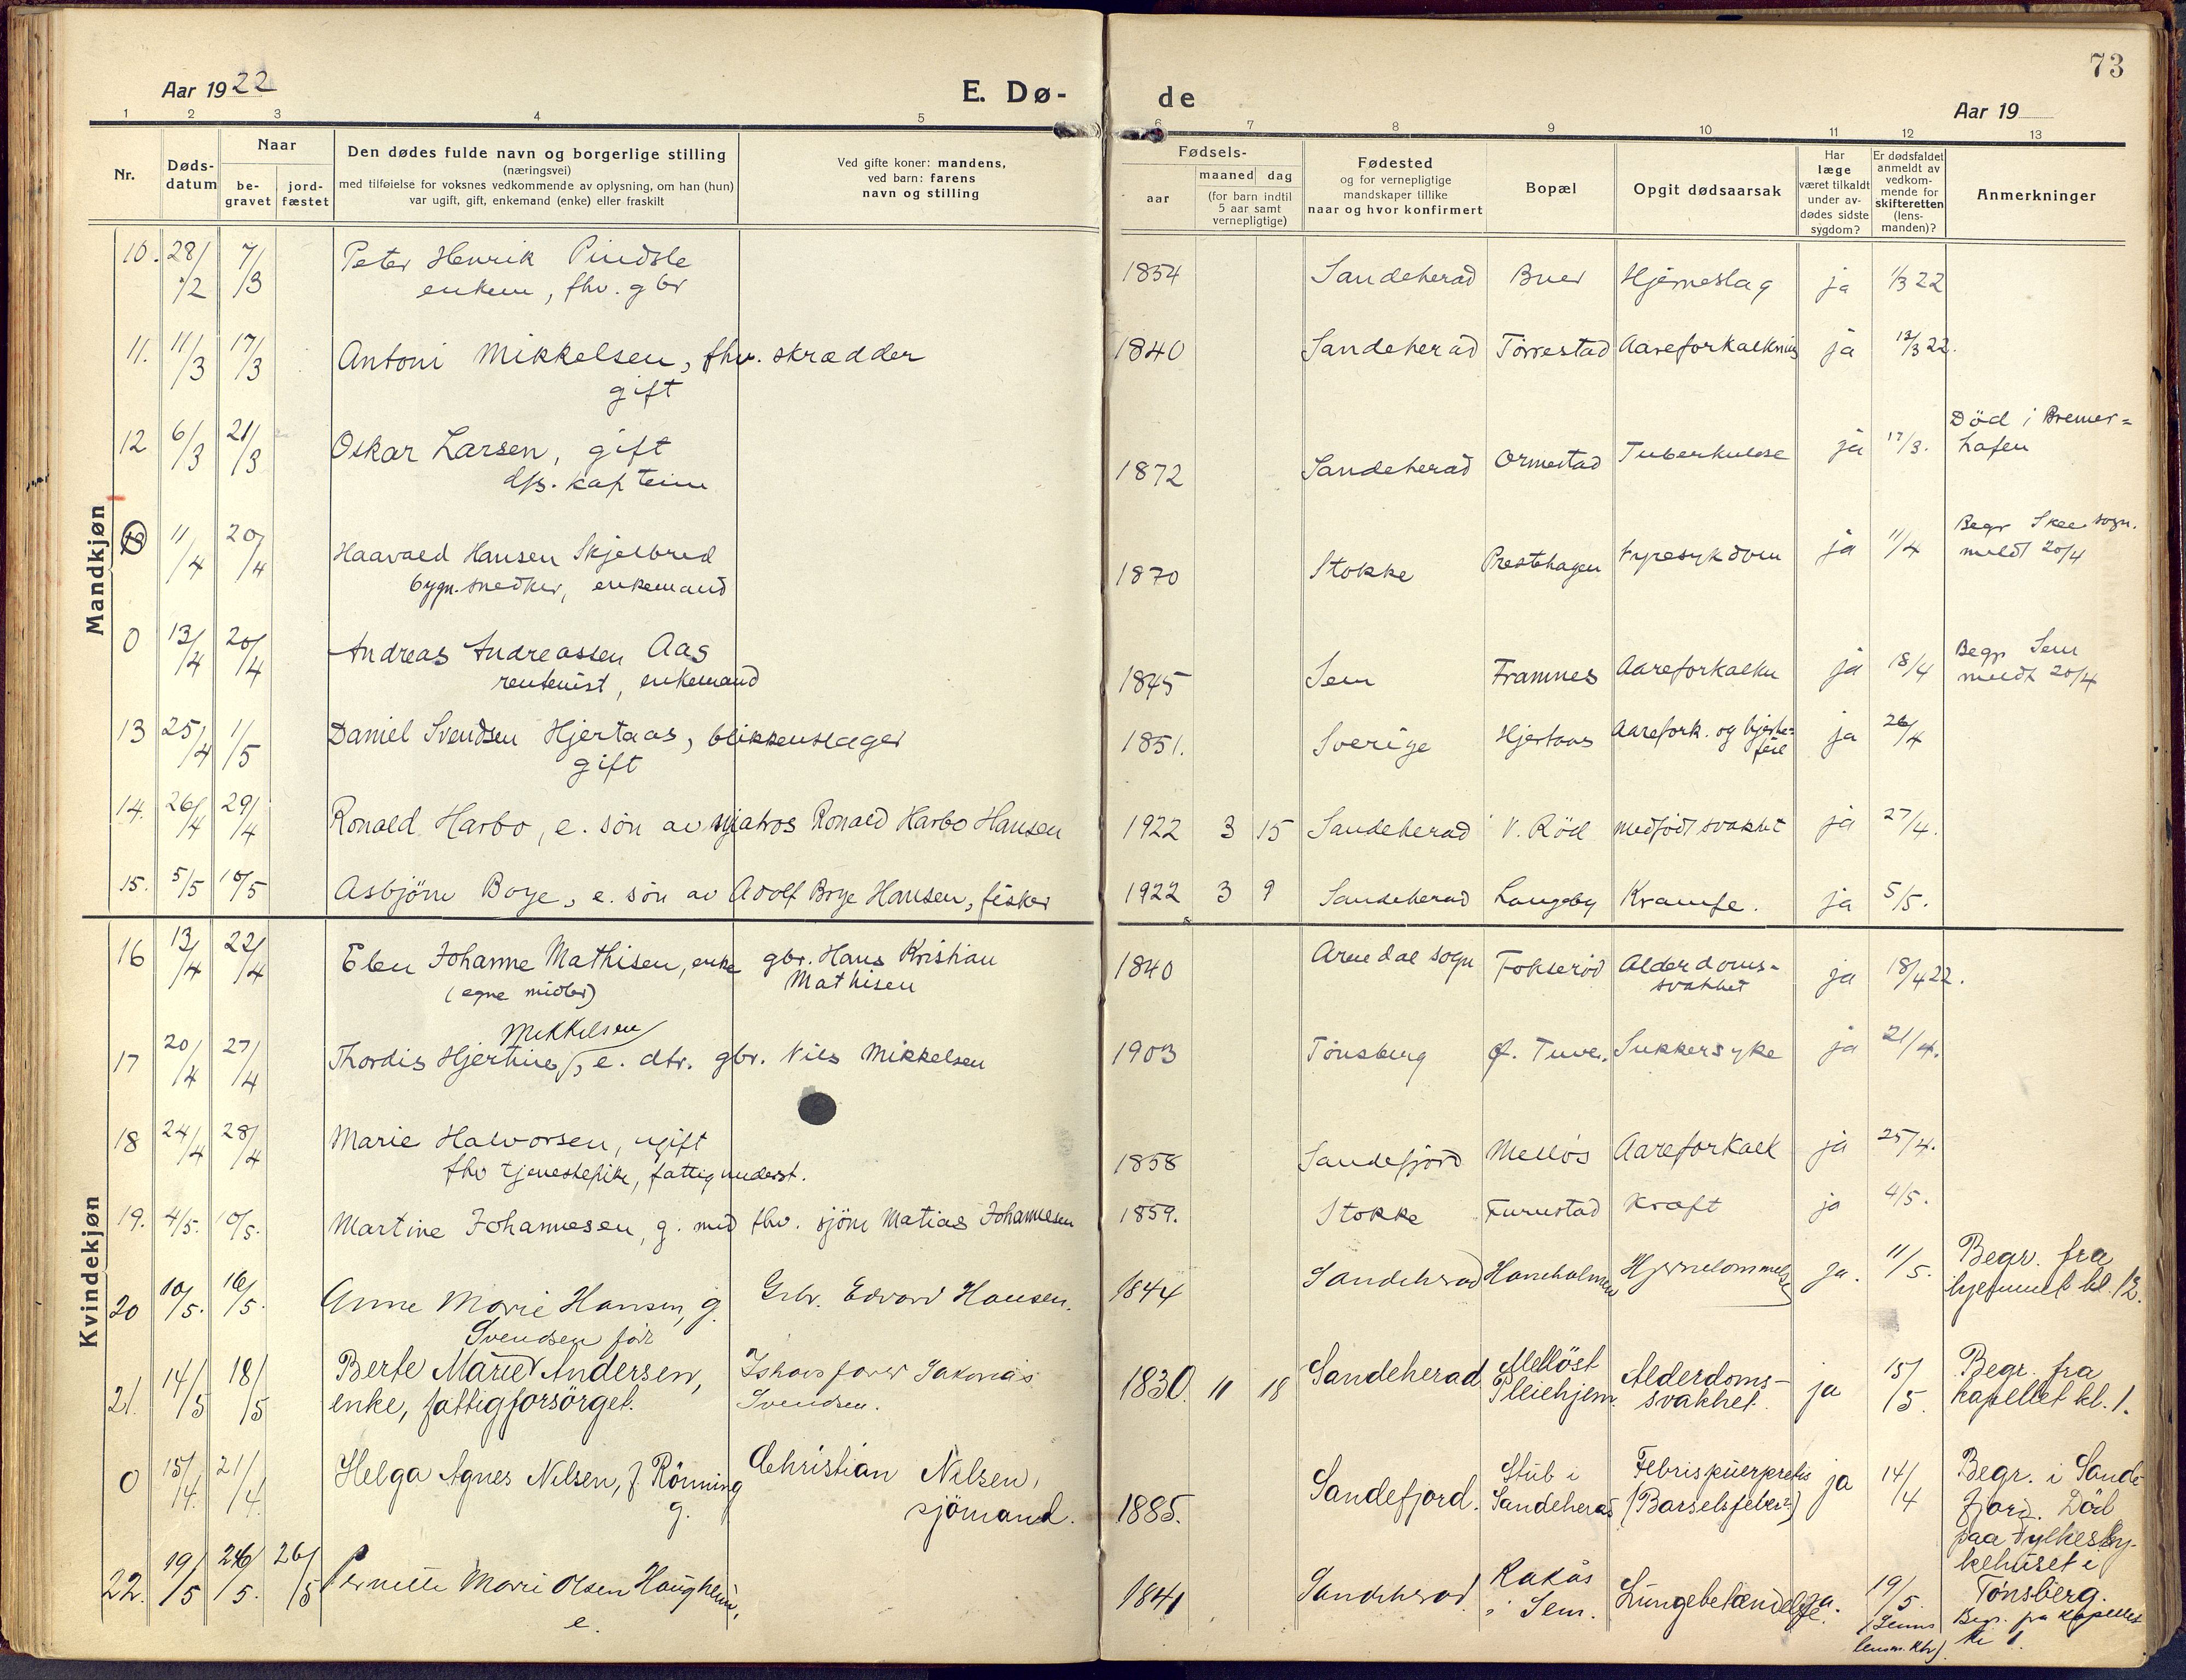 73
Aar 1922
E. Dø-
de
Aar 19
1 2 3 4 5 6 7 8 9 10 11 12 13
Nr.
Døds-
datum
Naar
be-
gravet
jord-
fæstet
Den dødes fulde navn og borgerlige stilling
(næringsvei)
med tilføielse for voksnes vedkommende av oplysning, om han (hun)
var ugift, gift, enkemand (enke) eller fraskilt
Ved gifte koner: mandens,
ved barn: farens
navn og stilling
Fødsels-
aar
maaned dag
(for barn indtil
5 aar samt
vernepligtige)
Fødested
og for vernepligtige
mandskaper tillike
naar og hvor konfirmert
Bopæl
Opgit dødsaarsak
Har
læge
været tilkaldt
under av-
dødes sidste
sygdom?
Er dødsfaldet
anmeldt av
vedkom-
mende for
skifteretten
(lens-
manden)?
Anmerkninger
Mandkjøn
10. 28/2 7/3 Peter Henrik Pindsle 1854 Sandeherad Buer Hjerneslag ja 1/3 22
enkem, fhv. gbr
11. 11/3 17/3 Antoni Mikkelsen, fhv. skrædder 1840 Sandeherad Torrestad Aareforkalkning ja 12/3 22.
gift
12 6/3 21/3 Oskar Larsen, gift 1872 Sandeherad Ormestad Tuberkulose ja 17/3. Död i Bremer=
dfs. kaptein hafen
11/4 20/4 Haavald Hansen Skjelbred 1870 Stokke Prestehagen Nyresykdom ja 11/4 Begr Skee sogn.
bygn.snedker, enkemand meldt 20/4
0 13/4 20/4 Andreas Andreassen Aas 1845 Sem Framnes Aareforkalkn ja 18/4 Begr Sem
rentenist, enkemand meldt 20/4
13 25/4 1/5 Daniel Svendsen Hjertaas, blikkenslager 1851. Sverige Hjertaas Aarefork. og hjerte=
gift feil ja 26/4
14. 26/4 29/4 Ronald Harbo, e. sön av matros Ronald Harbo Hansen 1922 3 15 Sandeherad V. Röd medfödt svakhet ja 27/4.
15. 5/5 10/5 Asbjörn Boye, e. sön av Adolf Boye Hansen, fisker 1922 3 9 Sandeherad Langeby Krampe. ja 5/5.
Kvindekjøn
16 13/4 22/4 Elen Johanne Mathisen, enke gbr. Hans Kristian 1840 Arnedal sogn Fokserød Alderdoms- ja 18/4 22.
(egne midler) Mathisen svakhet
Mikkelsen
17 20/4 27/4 Thordis Hjertine, e. dtr. gbr. Nils Mikkelsen 1903 Tönsberg Ø. Tuve. Sukkersyke ja 21/4.
18 24/4 28/4 Marie Halvorsen, ugift 1858 Sandefjord Melløs Aareforkalk ja 25/4.
fhv tjenestepike, fattigunderst.
19. 4/5. 10/5. Martine Johannesen, g. med fhv. sjöm Matias Johannesen 1859. Stokke Furustad Kræft ja 4/5.
20 10/5. 16/5. Anne Marie Hansen, g. Gbr. Edvard Hansen. 1844 Sandeherad Haneholmen Hjernelammelse ja. 11/5. Begr. fra
hjemmet kl. 12.
Svendsen för
21. 14/5 18/5 Berte Marie Andersen, Ishavsfarer Jakonias 1830. 11 18 Sandeherad Melløst Alderdoms- ja 15/5. Begr. fra
enke, fattigforsörget. Svendsen. Pleiehjem. svakhet. kapellet kl. 1.
0 15/4. 21/4. Helga Agnes Nilsen, f Rönning Christian Nilsen, 1885. Sandefjord. Stub i Febris puerperalis ja 14/4 Begr. i Sande
g. sjömand. Sandeherad (Barselsfeber) fjord. Död
paa Fylkessy-
kehuset i
Tönsberg.
22. 19/5 26/5. 26/5 Pernette Marie Olsen Haugheim, 1841 Sandeherad Rakås Lungebetændelse. ja. 19/5. Begr. fra kapellet
e. i Sem. (Sems kl 1.
lensm. Ktr).